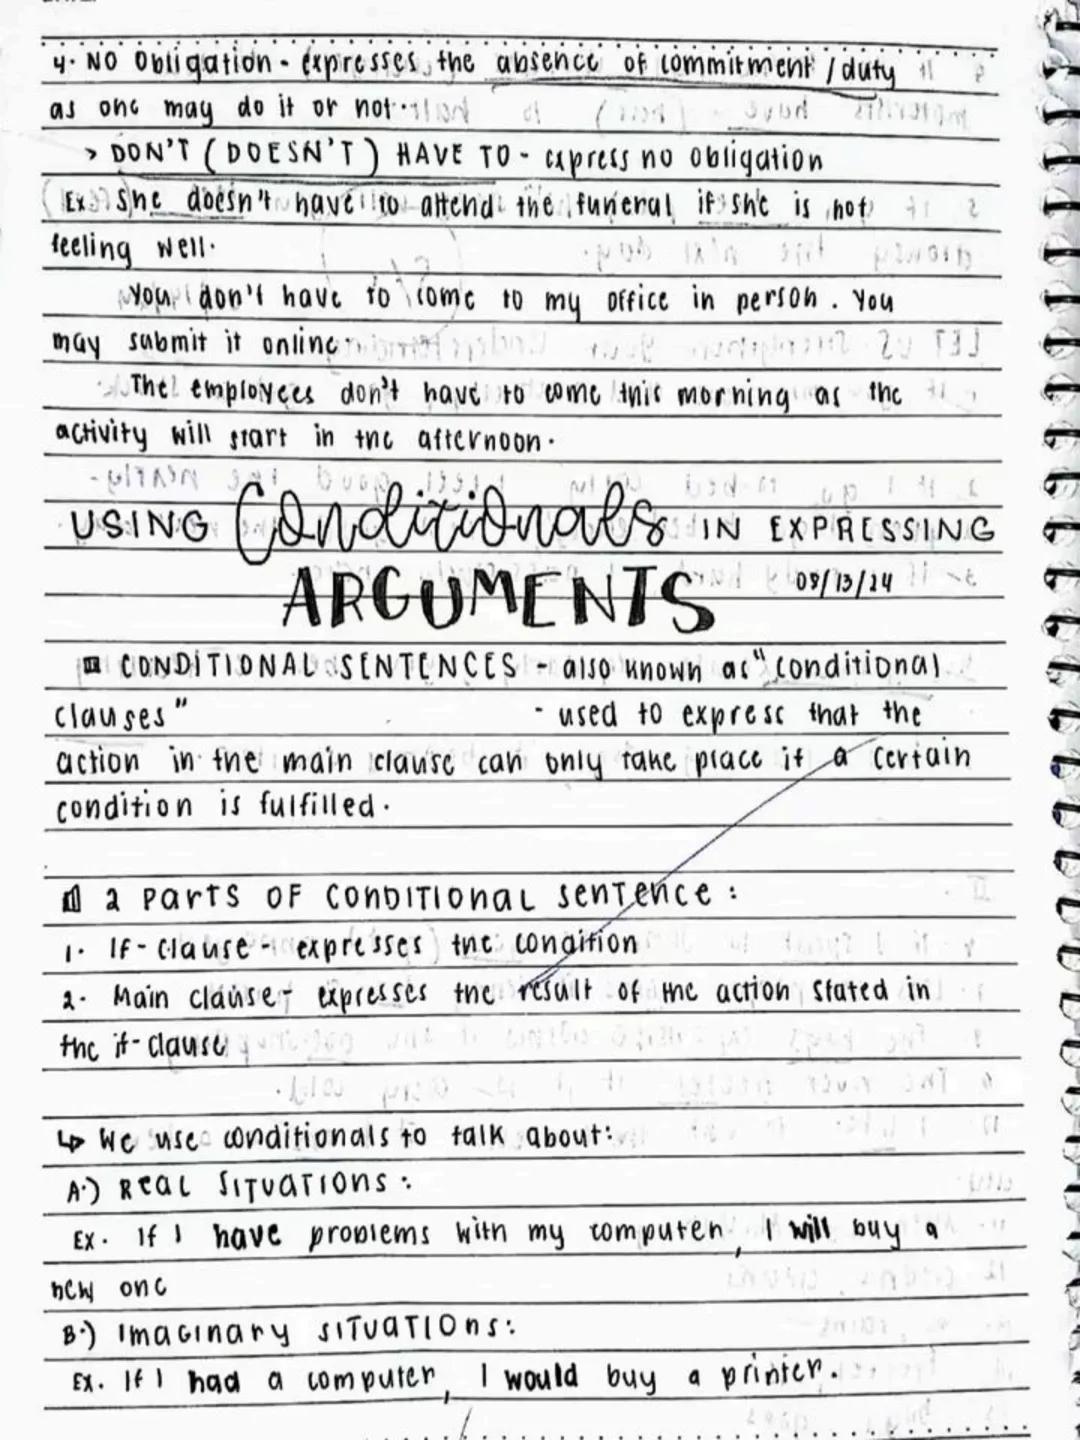 4. NO Obligation - expresses the absence of commitment / duty
as one may do it or not.
> DON'T (DOESN'T) HAVE TO - express no obligation
Ex. She doesn't have to attend the funeral if she is not
feeling well.
You don't have to come to my office in person. You
may submit it online.
The employees don't have to come this morning as the
activity will start in the afternoon.
USING Conditionals IN EXPRESSING
ARGUMENTS 08/13/24
CONDITIONAL SENTENCES - also known as "conditional
clauses"
- used to express that the
action in the main clause can only take place if a certain
condition is fulfilled.
2 PARTS OF CONDITIONAL SENTENCE:
1. If-Clause - expresses the condition
2. Main clause - expresses the result of the action stated in
the if-clause
↳ We use conditionals to talk about:
A.) REAL SITUATIONS:
Ex. If I have problems with my computer, I will buy a
new one
B.) IMAGINARY SITUATIONS:
Ex. If I had a computer, I would buy a printer.